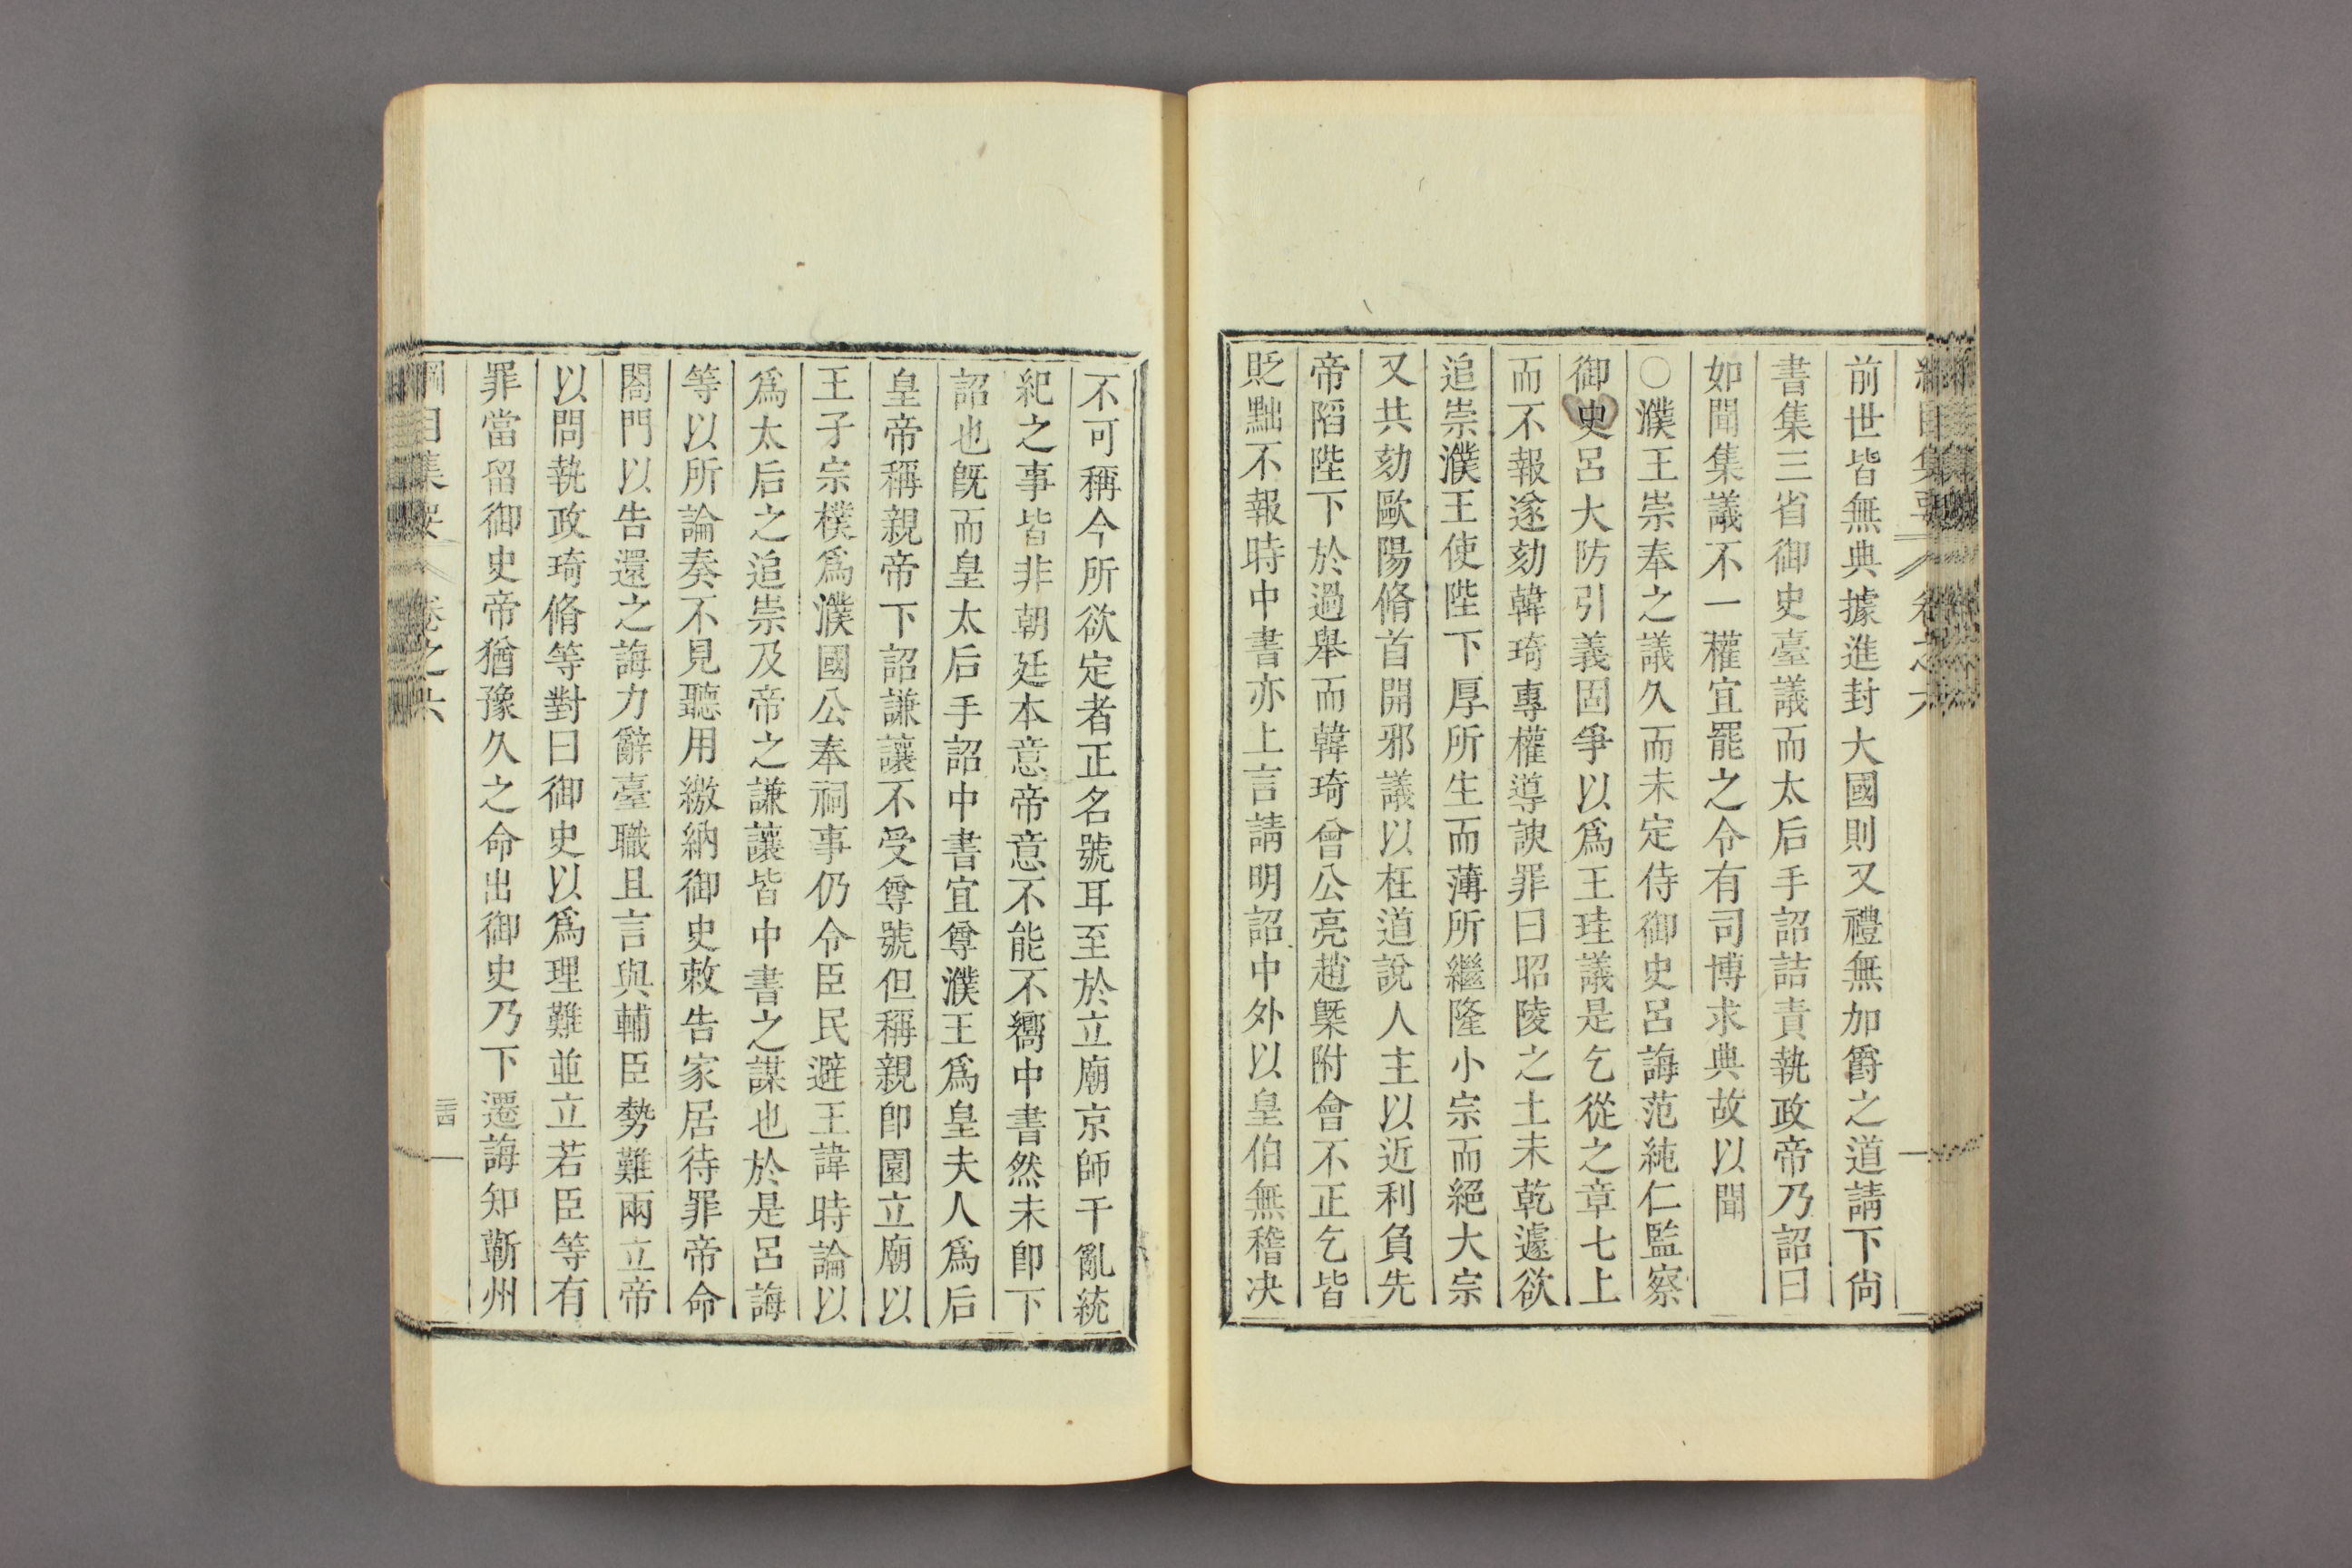 前世皆無典據進封大國則又禮無加爵之道請下尙
書集三省御史臺議而太后手詔詰責執政帝乃詔曰
如聞集議不一權宜罷之令有司博求典故以聞
○濮王崇奉之議久而未定侍御史呂誨范純仁監察
御史呂大防引義固爭以爲王珪議是乞從之章七上
而不報遂劾韓琦專權導諛罪曰昭陵之土未乾遽欲
追崇濮王使陛下厚所生而薄所繼隆小宗而絕大宗
又共劾歐陽脩首開邪議以枉道說人主以近利負先
帝陷陛下於過舉而韓琦曾公亮趙槩附會不正乞皆
貶黜不報時中書亦上言請明詔中外以皇伯無稽决
不可稱今所欲定者正名號耳至於立廟京師干亂統
紀之事皆非朝廷本意帝意不能不嚮中書然未卽下
詔也旣而皇太后手詔中書宜尊濮王爲皇夫人爲后
皇帝稱親帝下詔謙讓不受尊號但稱親卽園立廟以
王子宗樸爲濮國公奉祠事仍令臣民避王諱時論以
爲太后之追崇及帝之謙讓皆中書之謀也於是呂誨
等以所論奏不見聽用繳納御史敕告家居待罪帝命
閤門以告還之誨力辭臺職且言與輔臣勢難兩立帝
以問執政琦脩等對曰御史以爲理難並立若臣等有
罪當留御史帝猶豫久之命出御史乃下遷誨知蘄州
綱目集要 卷之六